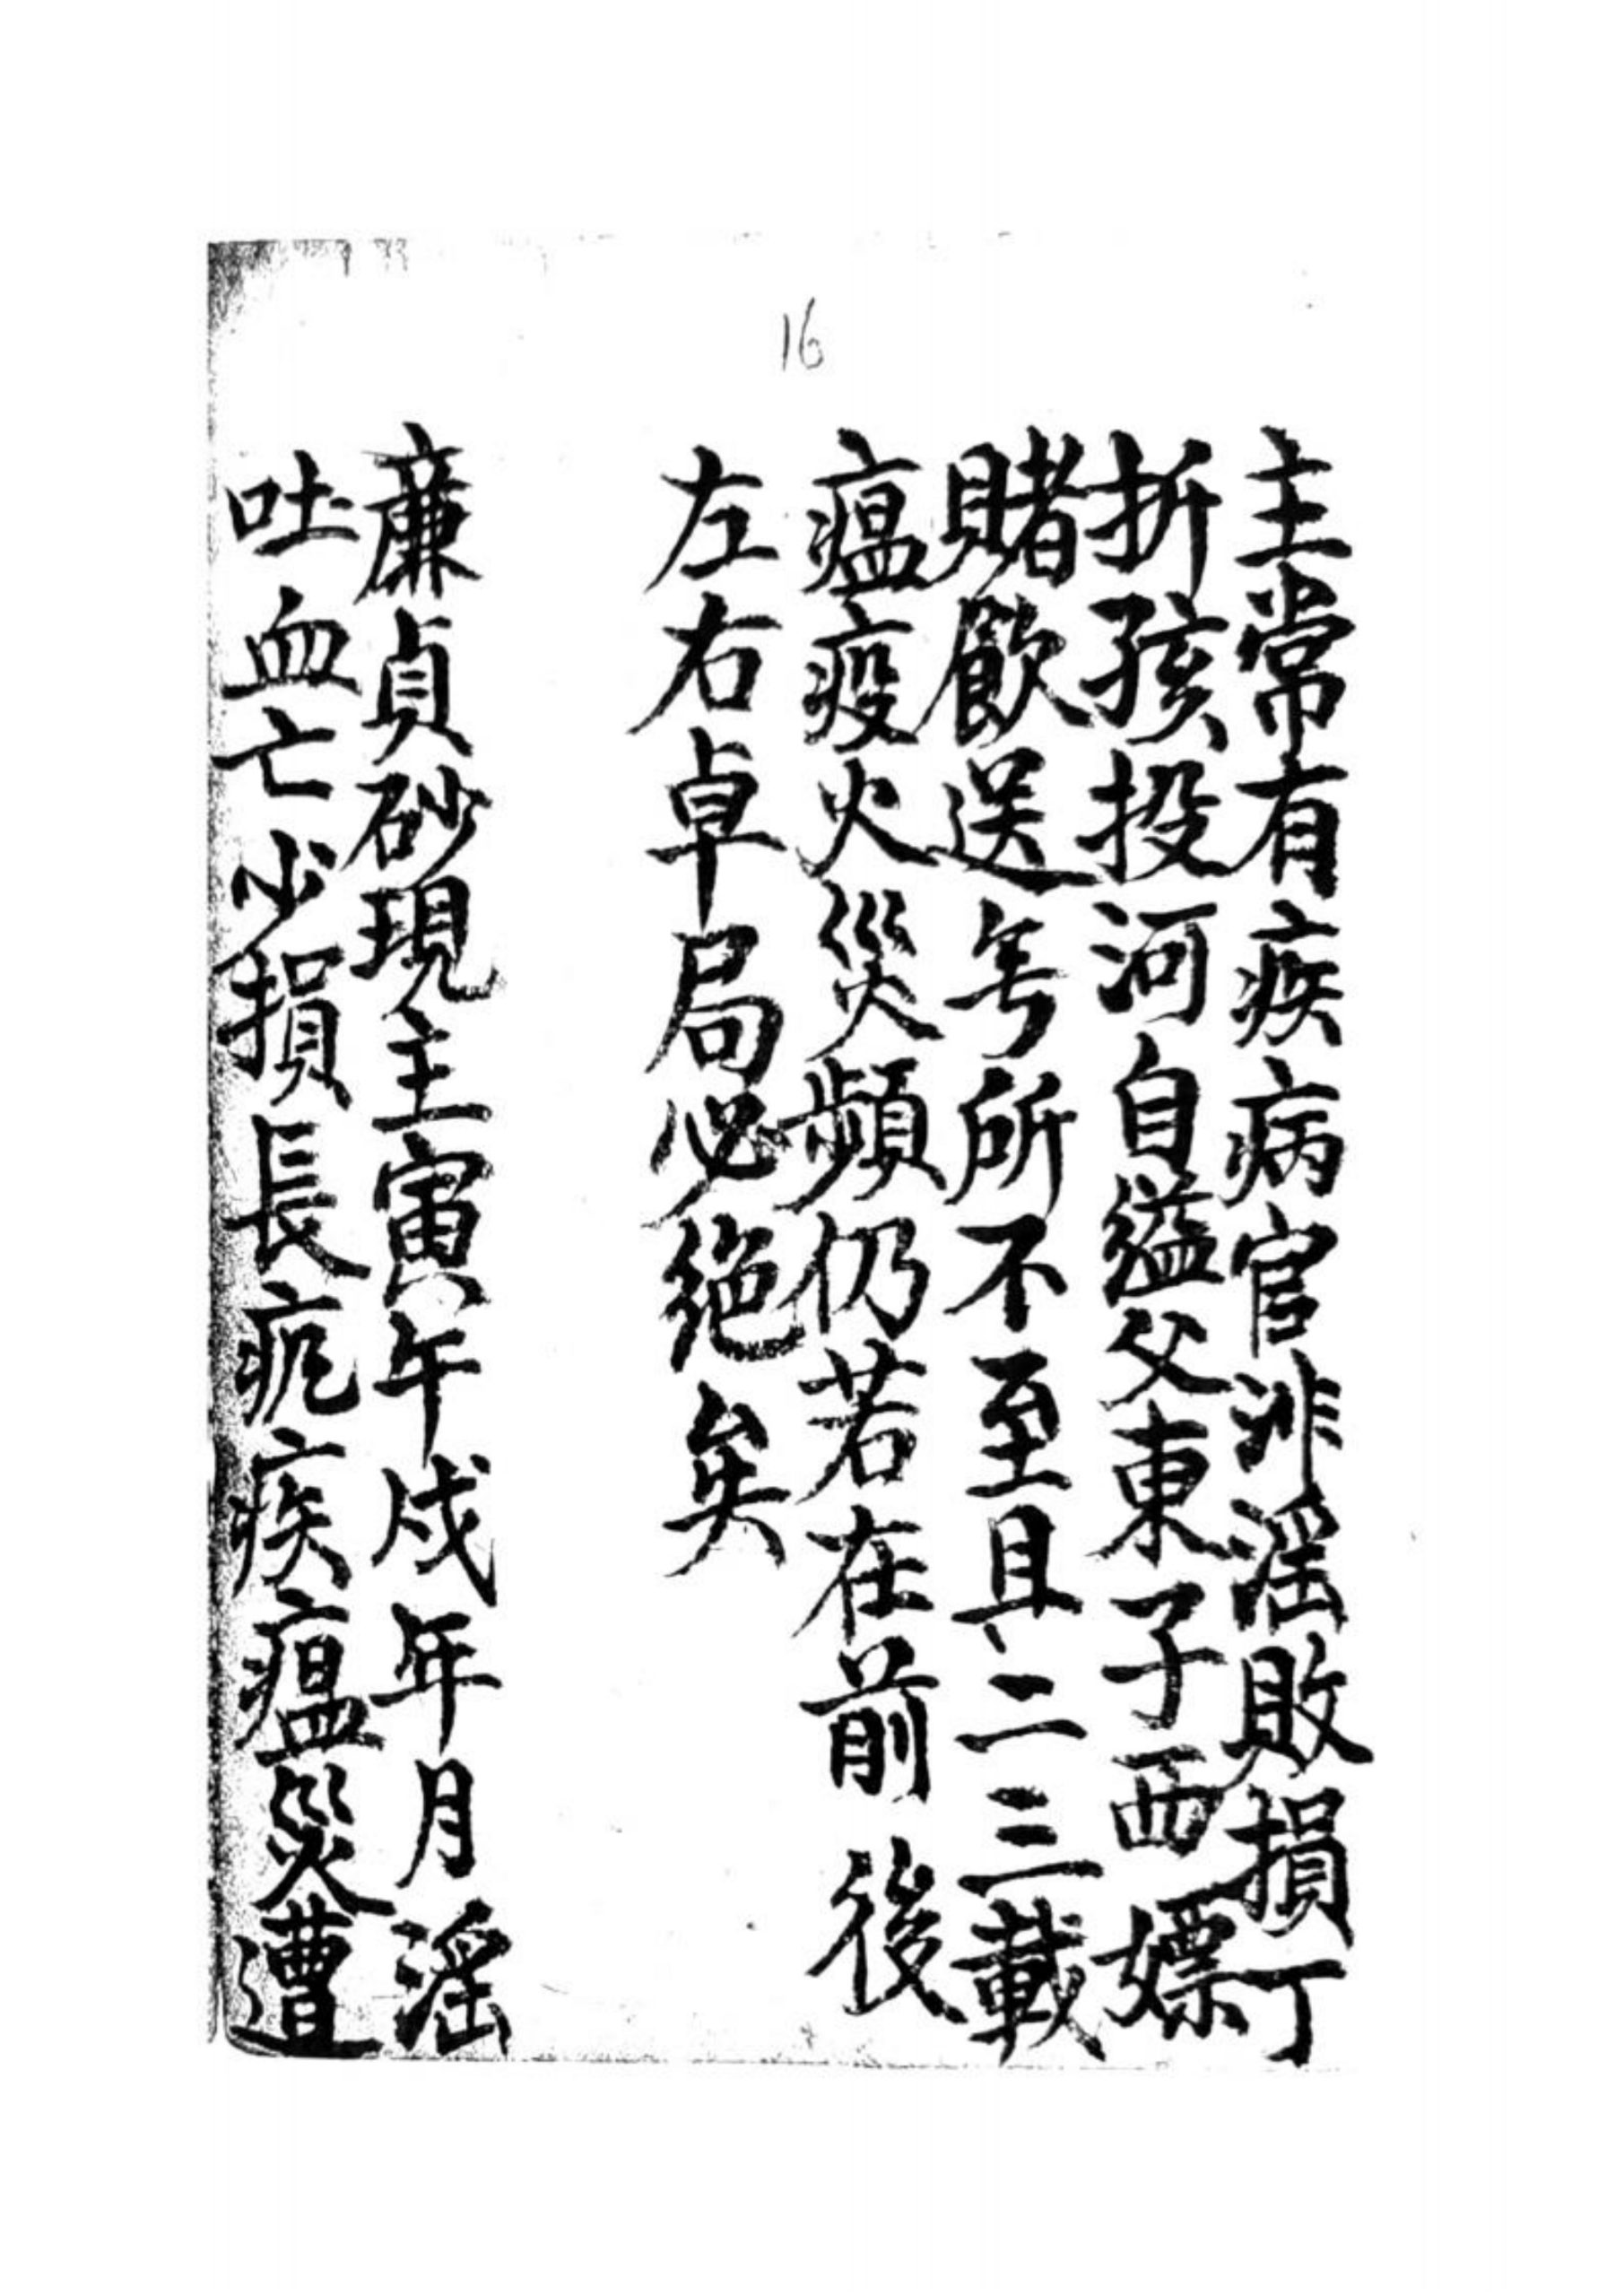 16
主常有疾病官非滛敗損丁
折孩投河自縊父東子西嫖
賭飲送号所不至且二三載
瘟疫火災頻仍若在前後
左右卓局必绝矣
廉貞砂現主寅午戍年月滛
吐血亡少損長疕疾瘟災遭